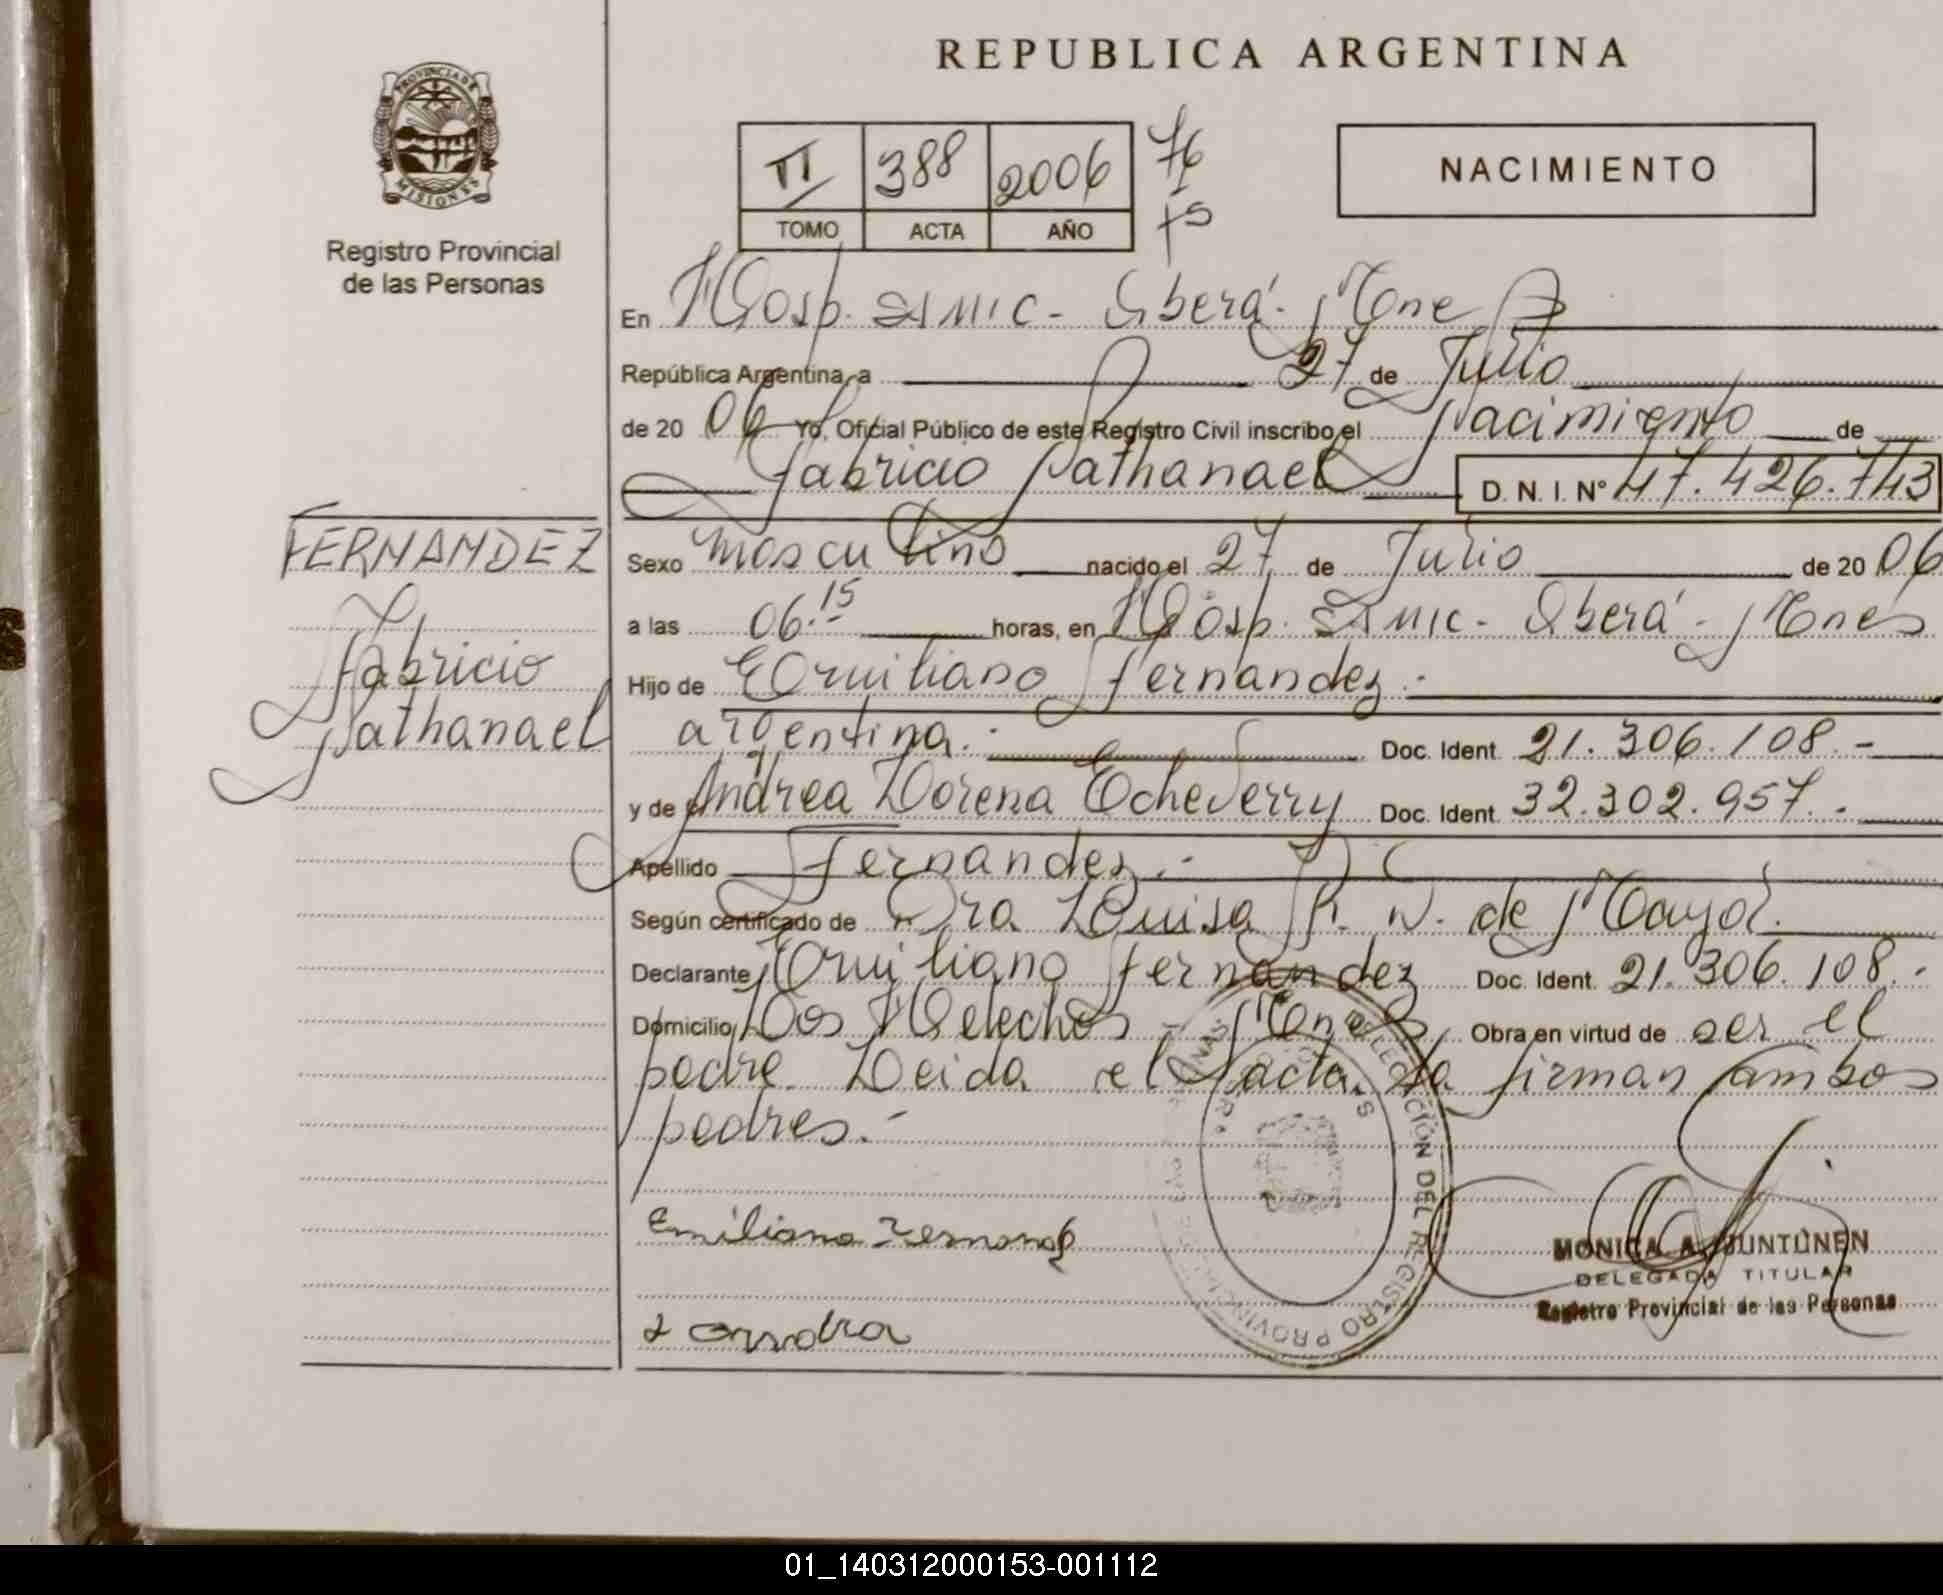 REPUBLICA ARGENTINA
PROVINCIA DE MISIONES
Registro Provincial
de las Personas
II 388 2006 76
TOMO ACTA AÑO
NACIMIENTO
En Hosp. SAMIC - Oberá - Mones
República Argentina, a 27 de Julio
de 20 06 Yo, Oficial Público de este Registro Civil inscribo el Nacimiento de
Fabricio Nathanael D. N. I. N° 47.426.743
FERNANDEZ
Fabricio
Nathanael
Sexo masculino nacido el 27 de Julio de 20 06
a las 06.15 horas, en Hosp. SAMIC - Oberá - Mones
Hijo de Emiliano Fernandez.-
argentina.- Doc. Ident. 21.306.108.-
y de Andrea Lorena Echeverry Doc. Ident. 32.302.957.-
Apellido Fernandez.-
Según certificado de Dra Luisa N. de Mayol.
Declarante Emiliano Fernandez Doc. Ident. 21.306.108.-
Domicilio Dos Helechos Mones Obra en virtud de ser el
padre. Leida el acta la firman ambos
padres.-
DELEGACIÓN DEL REGISTRO PROVINCIAL
Emiliano Fernandez
MONICA A. JUNTUNEN
DELEGADA TITULAR
Registro Provincial de las Personas
01_140312000153-001112